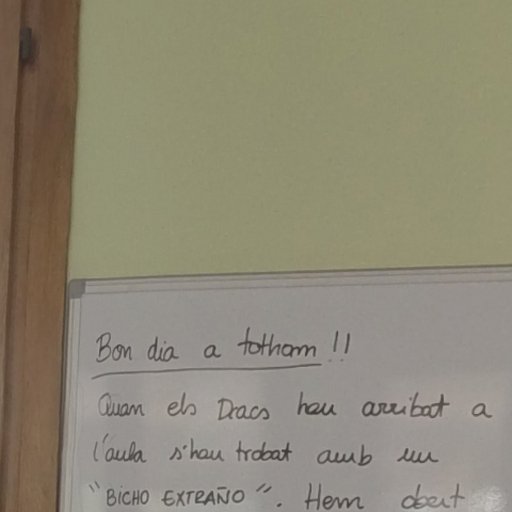 Bon dia a tothom!!
Quan els Dracs han arribat a
l'aula s'han trobat amb un
"BICHO EXTRAÑO". Hem obert